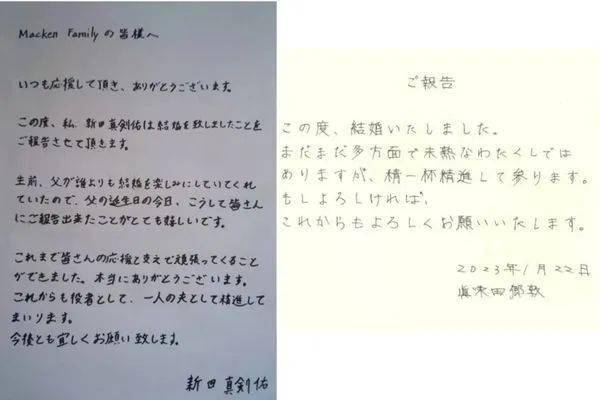 Macken Familyの皆様へ
いつも応援して頂き、ありがとうございます。
この度、私、新田真剣佑は結婚を致しましたことを
ご報告させて頂きます。
生前、父が誰よりも結婚を楽しみにしていてくれ
ていたので、父の誕生日の今日、こうして皆さん
にご報告出来たことがとても嬉しいです。
これまで皆さんの応援と支えで頑張ってくること
ができました。本当にありがとうございます。
これからも役者として、一人の夫として精進して
まいります。
今後とも宜しくお願い致します。
新田真剣佑
ご報告
この度、結婚いたしました。
まだまだ多方面で未熟なわたくしでは
ありますが、精一杯精進して参ります。
もしよろしければ、
これからもよろしくお願いいたします。
2023年1月22日
眞栄田郷敦